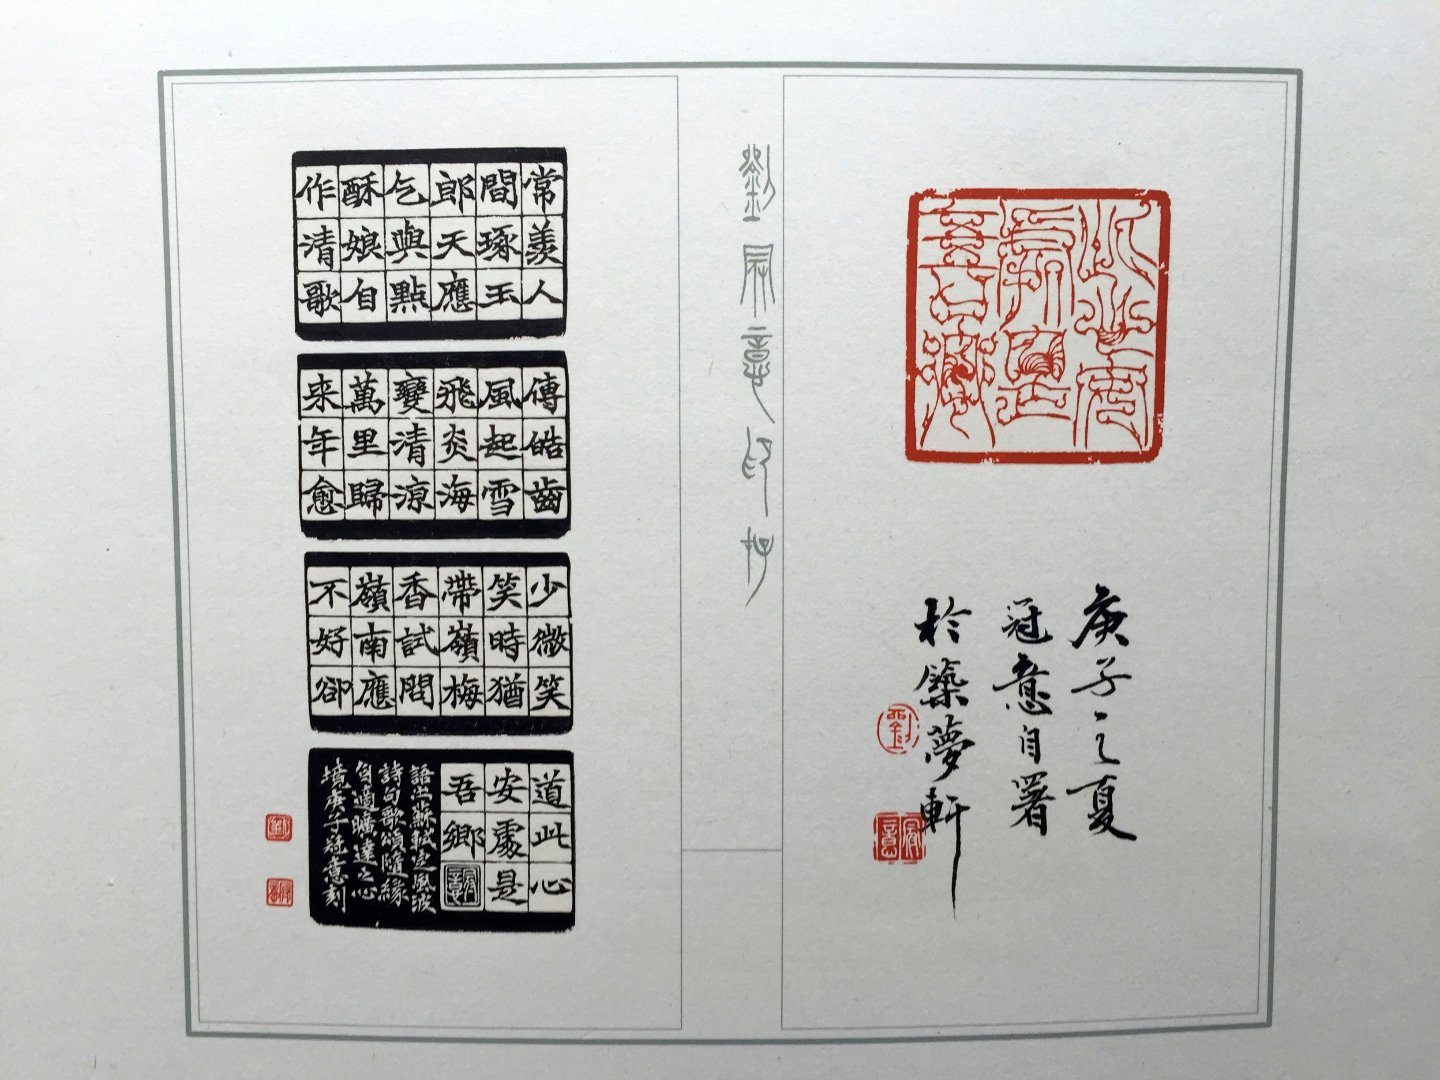 此心安
處是
吾鄉
庚子之夏
冠意自署
於築夢軒
劉
冠意
劉冠意印存
常羨人
間琢玉
郎天應
乞與點
酥娘自
作清歌
傳皓齒
風起雪
飛炎海
變清涼
萬里歸
来年愈
少微笑
笑時猶
帶嶺梅
香試問
嶺南應
不好卻
道此心
安處是
吾鄉
冠意
語出蘇軾定風波
詩句歌頌隨緣
自適曠達之心
境庚子冠意刻
劉
冠意